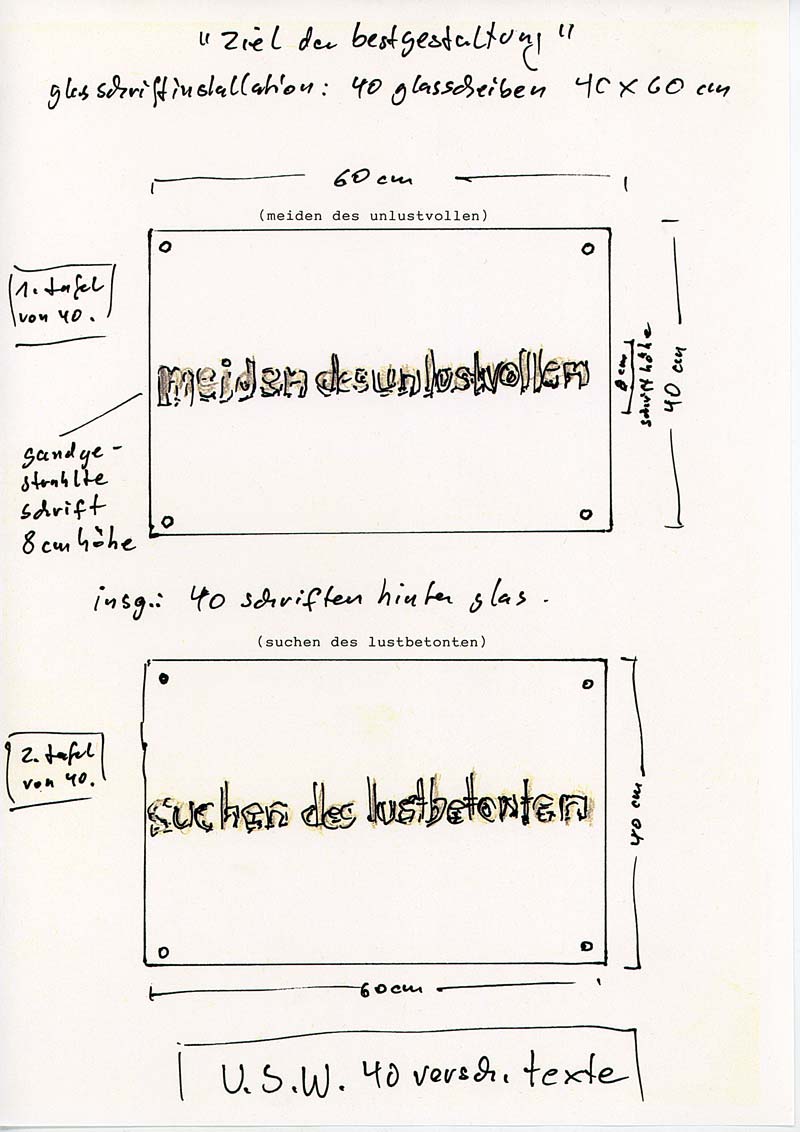 "ziel der bestgestaltung"
glasschriftinstallation: 40 glasscheiben 40 x 60 cm
60 cm
(meiden des unlustvollen)
1. tafel
von 40.
meiden des unlustvollen
8 cm
schrifthöhe
40 cm
sandge-
strahlte
schrift
8 cm höhe
insg.: 40 schriften hinter glas.
(suchen des lustbetonten)
2. tafel
von 40.
suchen des lustbetonten
40 cm
60 cm
U.S.W. 40 versch. texte